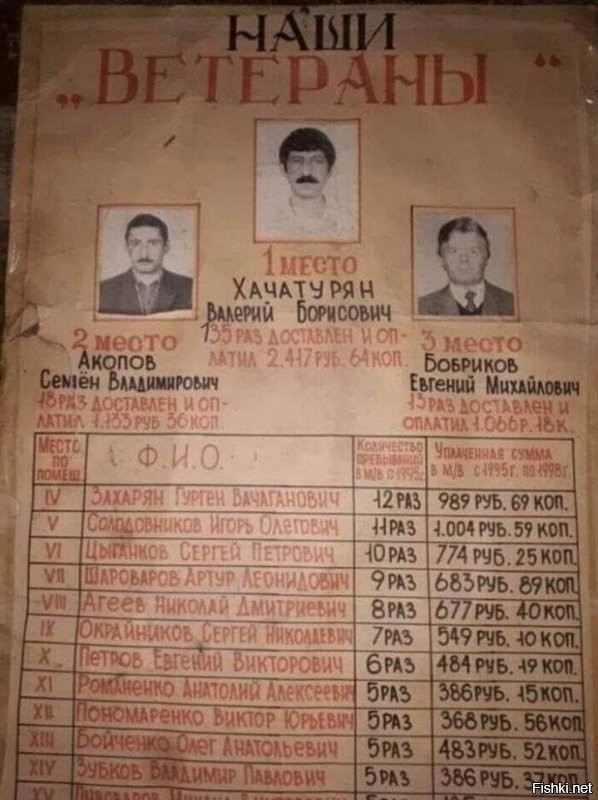 НАШИ
„ВЕТЕРАНЫ“
1 МЕСТО
ХАЧАТУРЯН
ВАЛЕРИЙ БОРИСОВИЧ
135 РАЗ ДОСТАВЛЕН И ОП-
ЛАТИЛ 2.417 РУБ. 64 КОП.
2 МЕСТО
АКОПОВ
СЕМЁН ВЛАДИМИРОВИЧ
18 РАЗ ДОСТАВЛЕН И ОП-
ЛАТИЛ 1.133 РУБ 36 КОП.
3 МЕСТО
БОБРИКОВ
ЕВГЕНИЙ МИХАЙЛОВИЧ
13 РАЗ ДОСТАВЛЕН И
ОПЛАТИЛ 1.066 Р. 18 К.
МЕСТО ПО ПОМЕЩ. Ф.И.О. КОЛИЧЕСТВО ПРЕБЫВАНИЙ В М/В С 1995г. УПЛАЧЕННАЯ СУММА В М/В С 1995г. ПО 1998г.
IV ЗАХАРЯН ГУРГЕН ВАЧАГАНОВИЧ 12 РАЗ 989 РУБ. 69 КОП.
V СОЛОДОВНИКОВ ИГОРЬ ОЛЕГОВИЧ 11 РАЗ 1.004 РУБ. 59 КОП.
VI ЦЫГАНКОВ СЕРГЕЙ ПЕТРОВИЧ 10 РАЗ 774 РУБ. 25 КОП.
VII ШАРОВАРОВ АРТУР ЛЕОНИДОВИЧ 9 РАЗ 683 РУБ. 89 КОП.
VIII АГЕЕВ НИКОЛАЙ ДМИТРИЕВИЧ 8 РАЗ 677 РУБ. 40 КОП.
IX ОКРАЙНИКОВ СЕРГЕЙ НИКОЛАЕВИЧ 7 РАЗ 549 РУБ. 10 КОП.
X ПЕТРОВ ЕВГЕНИЙ ВИКТОРОВИЧ 6 РАЗ 484 РУБ. 19 КОП.
XI РОМАНЕНКО АНАТОЛИЙ АЛЕКСЕЕВИЧ 5 РАЗ 386 РУБ. 15 КОП.
XII ПОНОМАРЕНКО ВИКТОР ЮРЬЕВИЧ 5 РАЗ 368 РУБ. 56 КОП.
XIII БОЙЧЕНКО ОЛЕГ АНАТОЛЬЕВИЧ 5 РАЗ 483 РУБ. 52 КОП.
XIV ЗУБКОВ ВЛАДИМИР ПАВЛОВИЧ 5 РАЗ 386 РУБ. КОП.
XV
Fishki.net